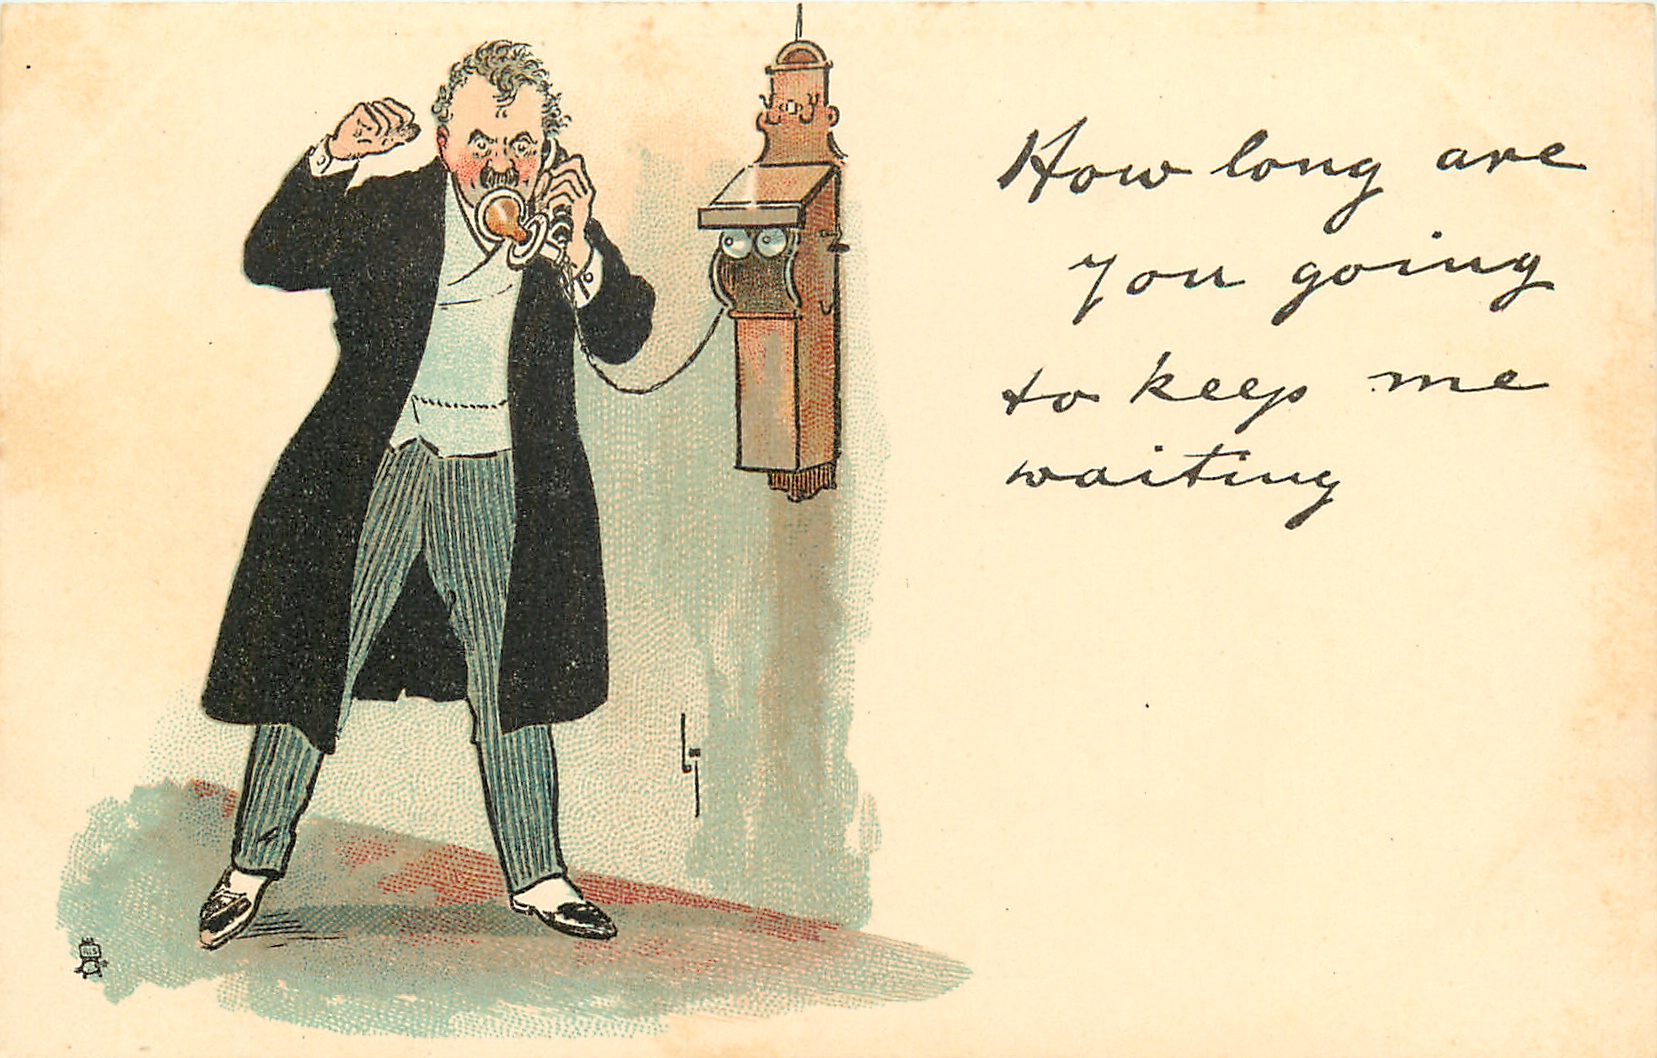 How long are
you going
to keep me
waiting